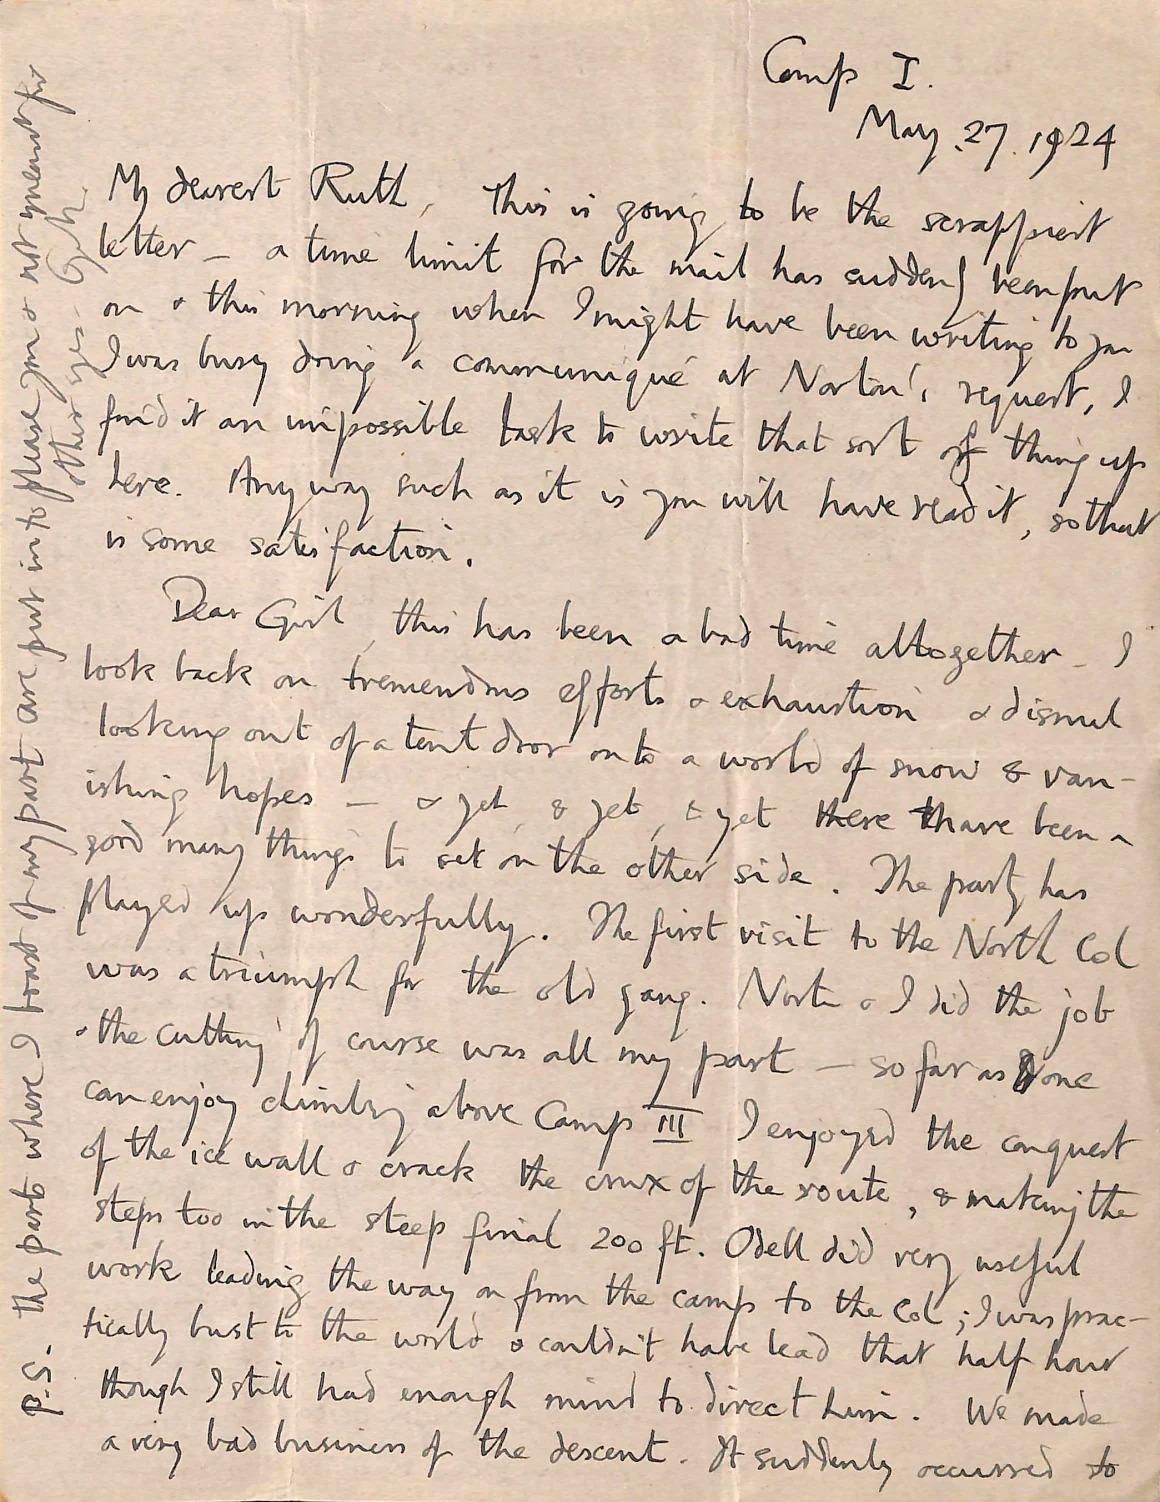 Camp I.
May .27. 1924
My dearest Ruth, This is going to be the scrappiest
letter – a time limit for the mail has suddenly been put
on & this morning when I might have been writing to you
I was busy doing a communiqué at Norton's request, I
find it an impossible task to write that sort of thing up
here. Anyway such as it is you will have read it, so that
is some satisfaction.
Dear Girl, this has been a bad time altogether – I
look back on tremendous efforts & exhaustion & dismal
looking out of a tent door onto a world of snow & van-
ishing hopes – & yet, & yet, & yet there have been a
good many things to set on the other side. The party has
played up wonderfully. The first visit to the North Col
was a triumph for the old gang. Norton & I did the job
& the cutting of course was all my part – so far as one
can enjoy climbing above Camp III I enjoyed the conquest
of the ice wall & crack the crux of the route, & making the
steps too in the steep final 200 ft. Odell did very useful
work leading the way on from the camp to the Col; I was prac-
tically bust to the world & couldn't have lead that half hour
though I still had enough mind to direct him. We made
a very bad business of the descent. It suddenly occurred to
P.S. The parts where I boast of my part are put in to please you & not meant for
other eyes –